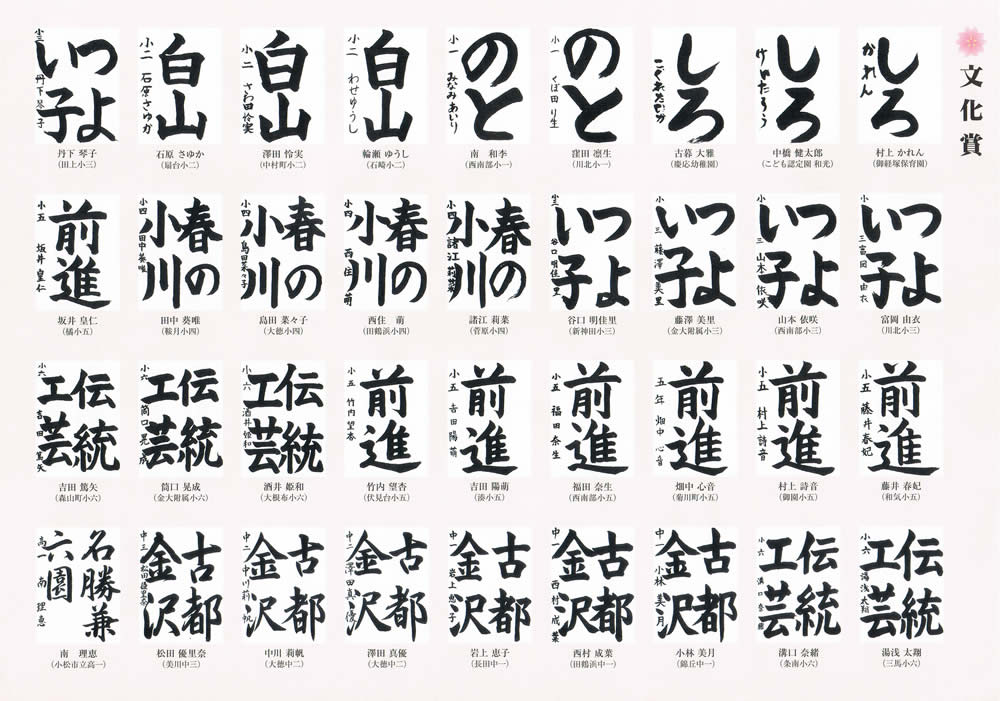 文化賞
しろ
かれん
村上 かれん
(御経塚保育園)
しろ
けんたろう
中橋 健太郎
(こども認定園 和光)
しろ
古暮 大雅
(慶応幼稚園)
のと
小一 くぼ田 り生
窪田 凛生
(川北小一)
のと
小一 みなみ あいり
南 和李
(西南部小一)
白山
小二 わせゆうし
輪瀬 ゆうし
(石崎小二)
白山
小二 さわ田 怜実
澤田 怜実
(中村町小二)
白山
小二 石原さゆか
石原 さゆか
(扇台小二)
つよ
い子
小三 丹下琴子
丹下 琴子
(田上小三)
つよ
い子
小三 富岡由衣
富岡 由衣
(川北小三)
つよ
い子
小三 山本依咲
山本 依咲
(西南部小三)
つよ
い子
小三 藤澤美里
藤澤 美里
(金大附属小三)
つよ
い子
小三 谷口明佳里
谷口 明佳里
(新神田小三)
春の
小川
小四 諸江莉菜
諸江 莉菜
(菅原小四)
春の
小川
小四 西住萌
西住 萌
(田鶴浜小四)
春の
小川
小四 島田菜々子
島田 菜々子
(大徳小四)
春の
小川
小四 田中葵唯
田中 葵唯
(鞍月小四)
前進
小五 坂井皇仁
坂井 皇仁
(橘小五)
前進
小五 藤井春妃
藤井 春妃
(和気小五)
前進
小五 村上詩音
村上 詩音
(御園小五)
前進
五年 畑中心音
畑中 心音
(菊川町小五)
前進
小五 福田奈生
福田 奈生
(西南部小五)
前進
小五 吉田陽萌
吉田 陽萌
(湊小五)
前進
小五 竹内望杏
竹内 望杏
(伏見台小五)
伝統
工芸
小六 酒井姫和
酒井 姫和
(大根布小六)
伝統
工芸
小六 筒口晃成
筒口 晃成
(金大附属小六)
伝統
工芸
小六 吉田篤矢
吉田 篤矢
(森山町小六)
伝統
工芸
小六 湯浅太翔
湯浅 太翔
(三馬小六)
伝統
工芸
小六 溝口奈緒
溝口 奈緒
(条南小六)
古都
金沢
中一 小林美月
小林 美月
(錦丘中一)
古都
金沢
中一 西村成葉
西村 成葉
(田鶴浜中一)
古都
金沢
中一 岩上恵子
岩上 恵子
(長田中一)
古都
金沢
中二 澤田真優
澤田 真優
(大徳中二)
古都
金沢
中二 中川莉帆
中川 莉帆
(大徳中二)
古都
金沢
中三 松田優里奈
松田 優里奈
(美川中三)
名勝兼
六園
高一 南理恵
南 理恵
(小松市立高一)